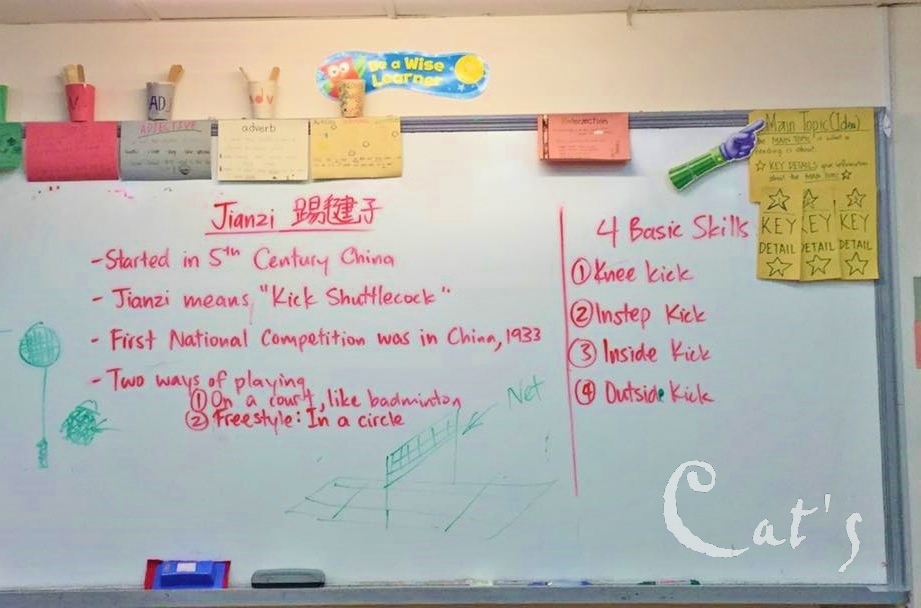 Be a Wise
Learner
V
ADJ
adv
ADJECTIVE
adverb
interjection
Main Topic (Idea)
the MAIN TOPIC is what a
reading is about.
☆ KEY DETAILS give information
about the MAIN TOPIC ☆
KEY KEY KEY
DETAIL DETAIL DETAIL
Jianzi 踢毽子
- Started in 5th Century China
- Jianzi means "Kick Shuttlecock"
- First National Competition was in China, 1933
- Two ways of playing
① On a court, like badminton
② Freestyle: In a circle
Net
4 Basic Skills
① Knee kick
② Instep Kick
③ Inside Kick
④ Outside Kick
Cat's